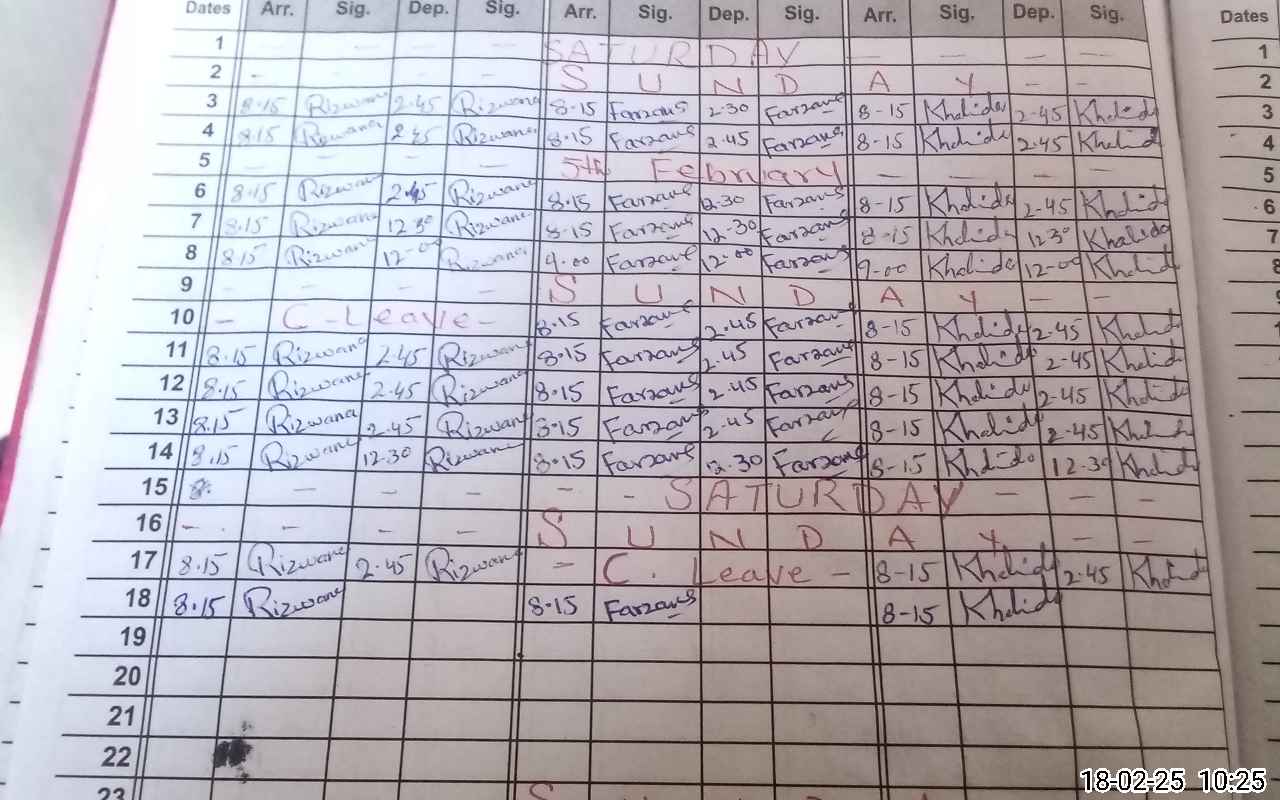 Dates Arr. Sig. Dep. Sig. Arr. Sig. Dep. Sig. Arr. Sig. Dep. Sig. Dates
1 — — — — SATURDAY — — — — 1
2 - — — S U N D A Y — — 2
3 8.15 Rizwana 2.45 Rizwana 8.15 Farzana 2.30 Farzana 8-15 Khalida 2-45 Khalida 3
4 8.15 Rizwana 2.45 Rizwana 8.15 Farzana 2.45 Farzana 8-15 Khalida 2.45 Khalida 4
5 — — — — 5th February — — — — 5
6 8.15 Rizwana 2.45 Rizwana 8.15 Farzana 12.30 Farzana 8-15 Khalida 2-45 Khalida 6
7 8.15 Rizwana 12.30 Rizwana 8-15 Farzana 12-30 Farzana 8-15 Khalida 12.30 Khalida 7
8 8.15 Rizwana 12-00 Rizwana 9.00 Farzana 12.00 Farzana 9-00 Khalida 12-00 Khalida 8
9 — — — — S U N D A Y — —
10 — C-Leave - 8.15 Farzana 2.45 Farzana 8-15 Khalida 2-45 Khalida
11 8.15 Rizwana 2.45 Rizwana 8.15 Farzana 2.45 Farzana 8-15 Khalida 2-45 Khalida
12 8.15 Rizwana 2.45 Rizwana 8.15 Farzana 2.45 Farzana 8-15 Khalida 2-45 Khalida
13 8.15 Rizwana 2.45 Rizwana 8.15 Farzana 2.45 Farzana 8-15 Khalida 2-45 Khalida
14 8.15 Rizwana 12.30 Rizwana 8.15 Farzana 12.30 Farzana 8-15 Khalida 12-30 Khalida
15 8. — — — - - SATURDAY — — —
16 -. — — — S U N D A Y — —
17 8.15 Rizwana 2.45 Rizwana — C. Leave — 8-15 Khalida 2-45 Khalida
18 8.15 Rizwana 8.15 Farzana 8-15 Khalida
19
20
21
22
23 S
18-02-25 10:25